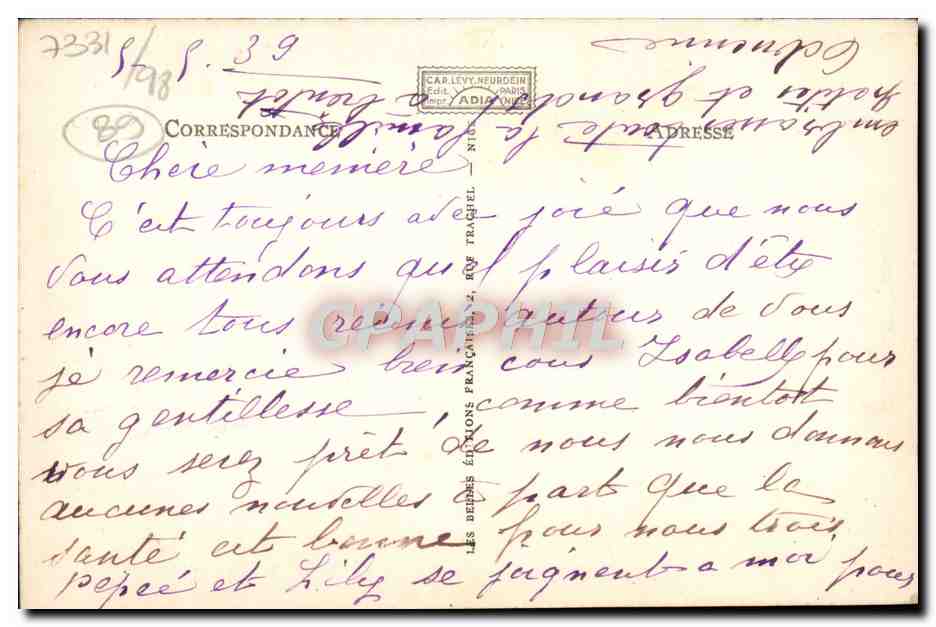 7331
98
5 - 5. 39
89
CAP. LEVY-NEURDEIN
Edit. PARIS
Impr. ADIA NICE
CORRESPONDANCE
ADRESSE
Chère memère
C'est toujours avec joie que nous
vous attendons quel plaisir d'être
encore tous réunis autour de vous
je remercie bien cous Isabelle pour
sa gentillesse, comme bientôt
vous serez prêt de nous nous donnons
aucunes nouvelles à part que la
santé est bonne pour nous trois
Pépée et Lily se joignent a moi pour
embrasser toute la famille
petits et grands a bientot
LES BELLES ÉDITIONS FRANÇAISES, 2, RUE TRACHEL — NICE
CPAPHIL